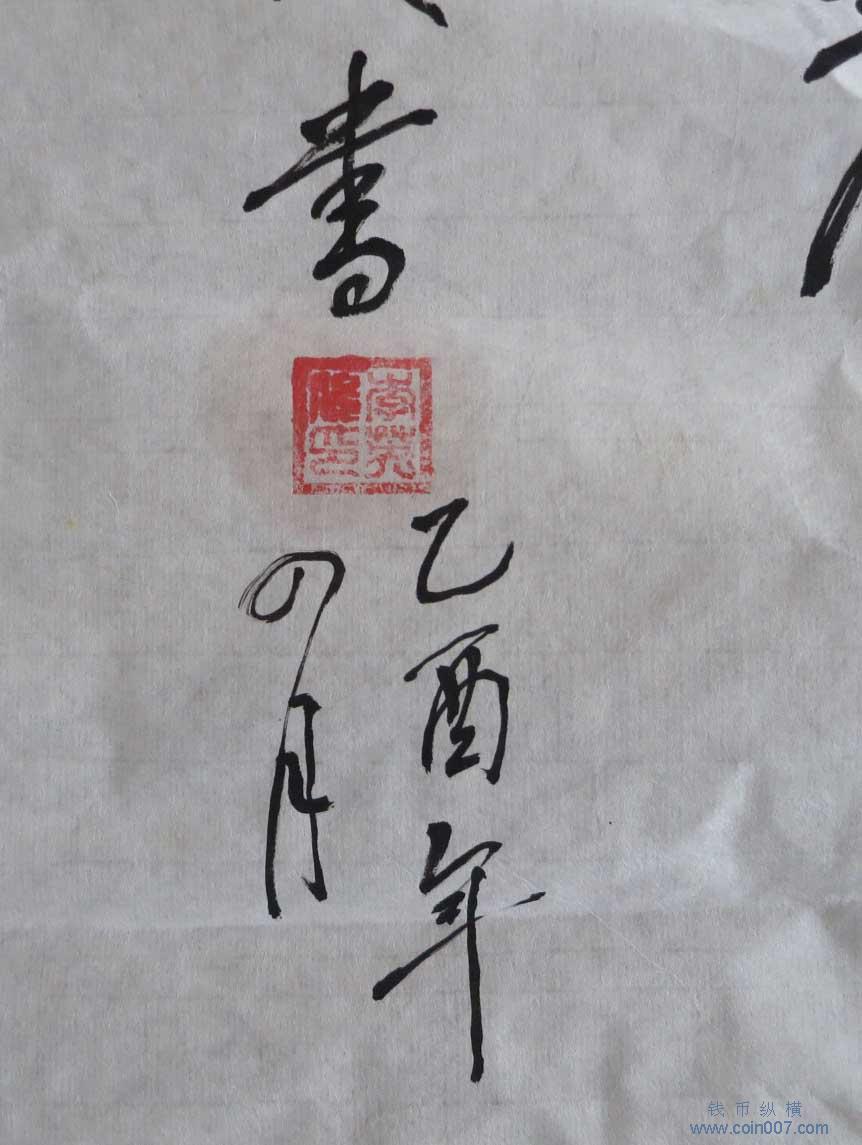 書
李英
印
乙酉年
四月
钱币纵横
www.coin007.com